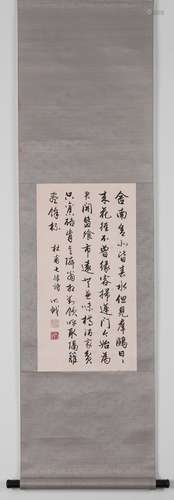 舍南舍北皆春水但見羣鷗日日
來花徑不曾緣客掃蓬門今始為
君開盤飧市遠無兼味樽酒家貧
只舊醅肯與鄰翁相對飲呼取隔籬
盡餘杯 杜甫 詩